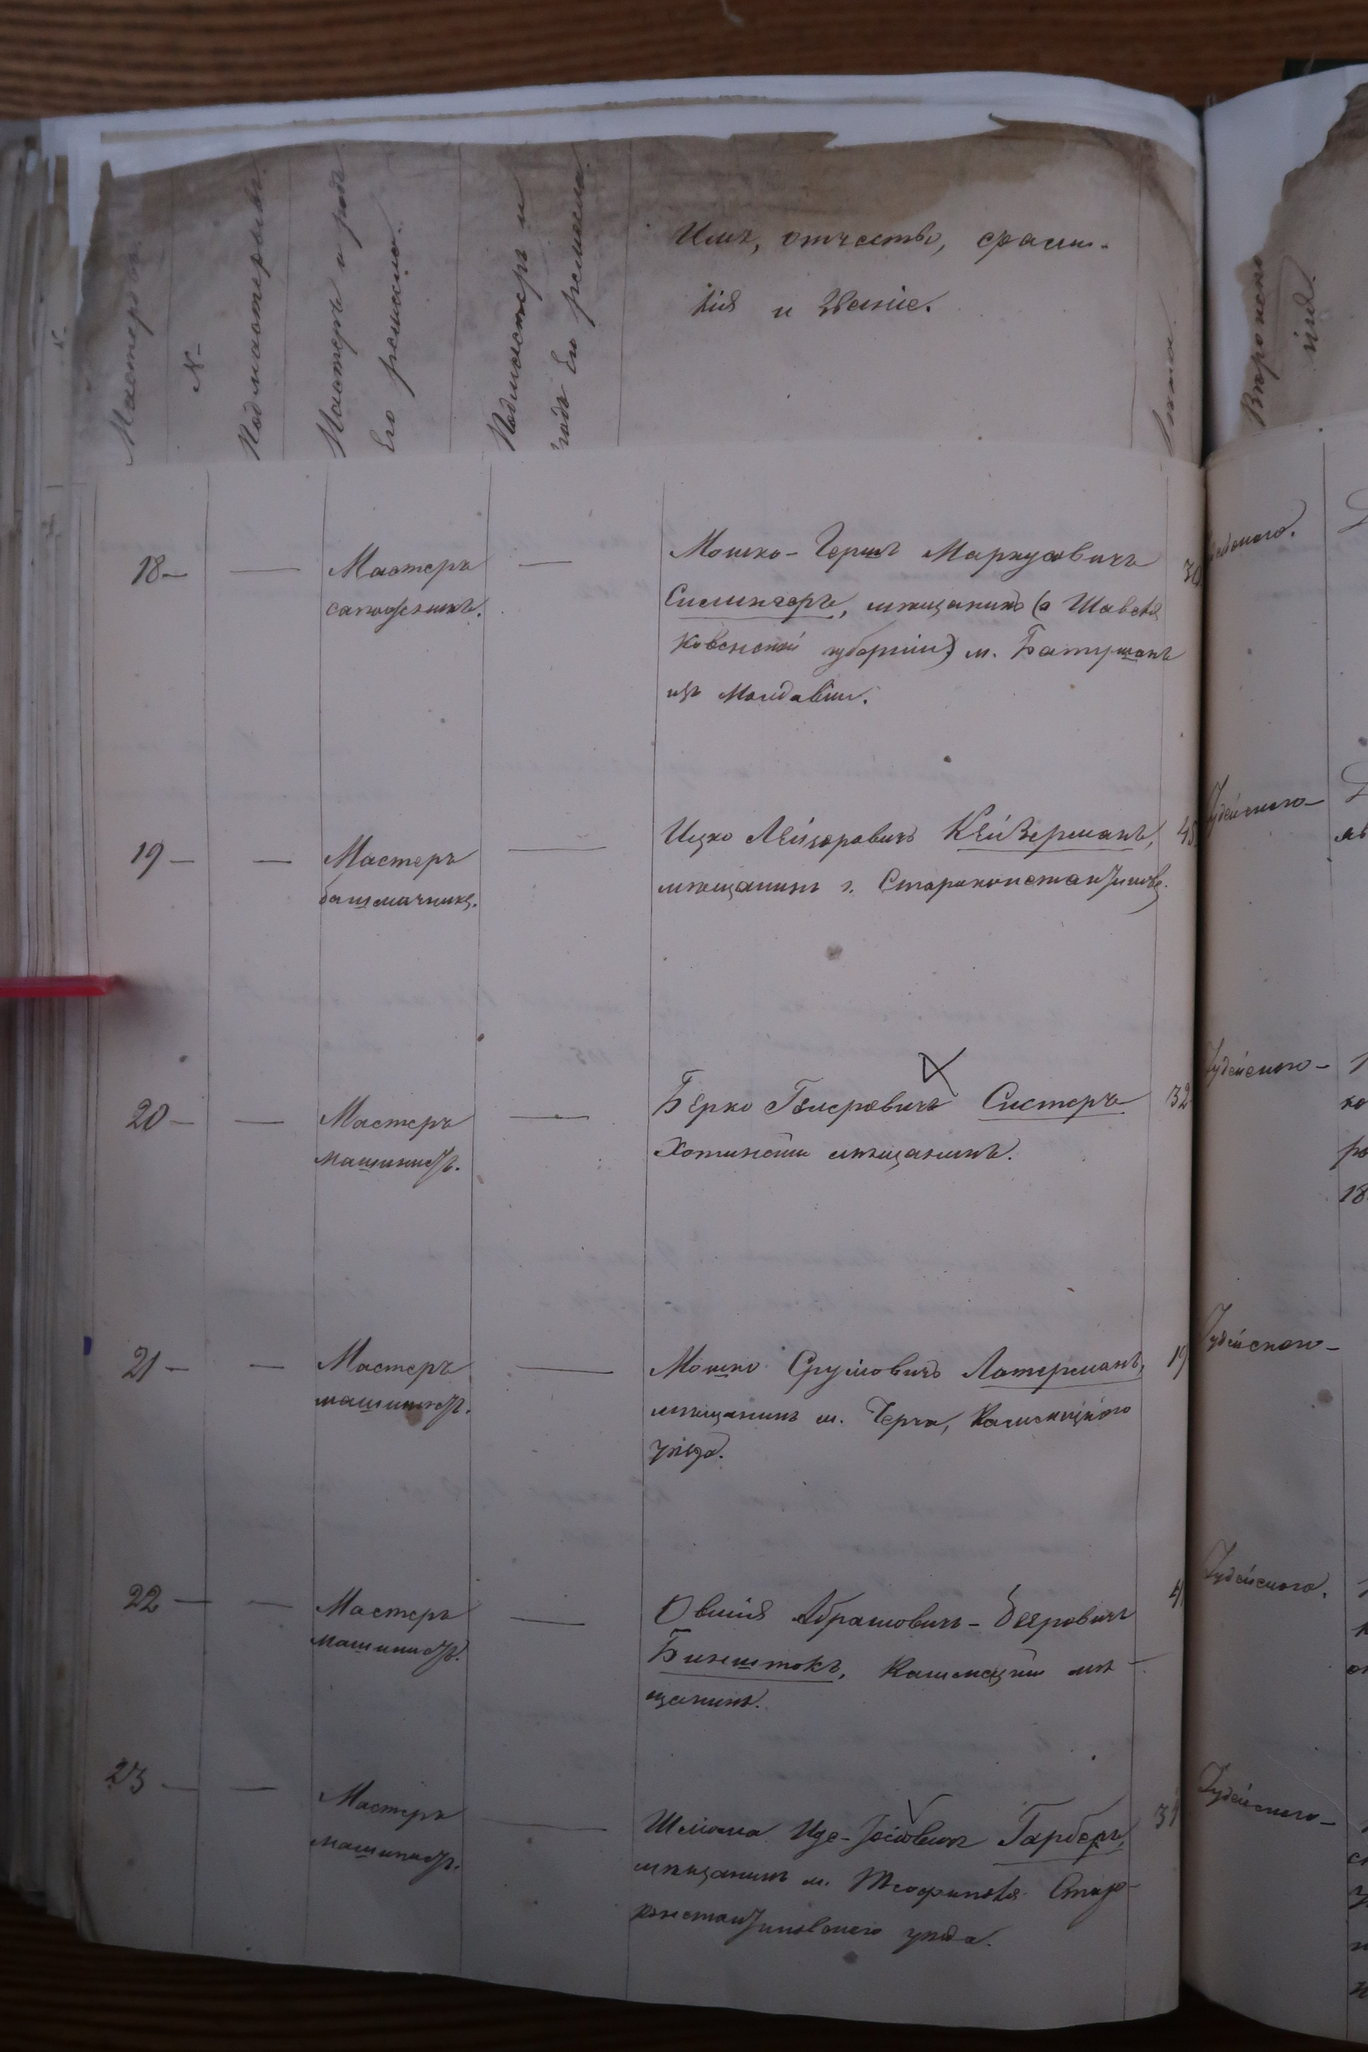 Мастеровъ
№
Подмастерьевъ
Мастеръ и родъ
его ремесла.
Подмастеръ и
родъ его ремесла.
Имя, отчество, фами-
лія и званіе.
Лета
Вѣроисповѣ
нія.
18 —
—
Мастеръ
сапожникъ.
—
Мошко-Гершъ Маркусовичъ
мѣщанинъ
Ковенской губерніи) м. Батушанъ
изъ Молдавіи.
19 —
—
Мастеръ
башмачникъ.
—
Ицко Лейзеровичъ Клейзерманъ,
мѣщанинъ г. Староконстантинова.
45
Іудейскаго —
20 —
—
Мастеръ
машинистъ.
—
Берко Систеръ
Хотинскій мѣщанинъ.
32
Іудейскаго —
18
21 —
—
Мастеръ
машинистъ.
—
Мошко Срулёвичъ Латерманъ,
мѣщанинъ м. Черча, Каменецкаго
уѣзда.
19
Іудейскаго —
22 —
—
Мастеръ
машинистъ.
—
Овшія Абрамовичъ-Беровичъ
Бинштокъ, Каменецкій мѣ-
щанинъ.
Іудейскаго.
23 —
—
Мастеръ
машинистъ.
—
Шлёма Иде- Гарберъ,
мѣщанинъ м. Теофиполя Старо-
константиновскаго уѣзда.
Іудейскаго —